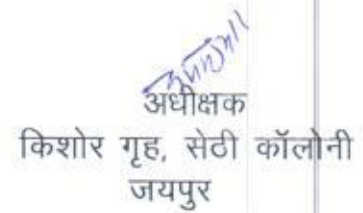 अधीक्षक
किशोर गृह, सेठी कॉलोनी
जयपुर